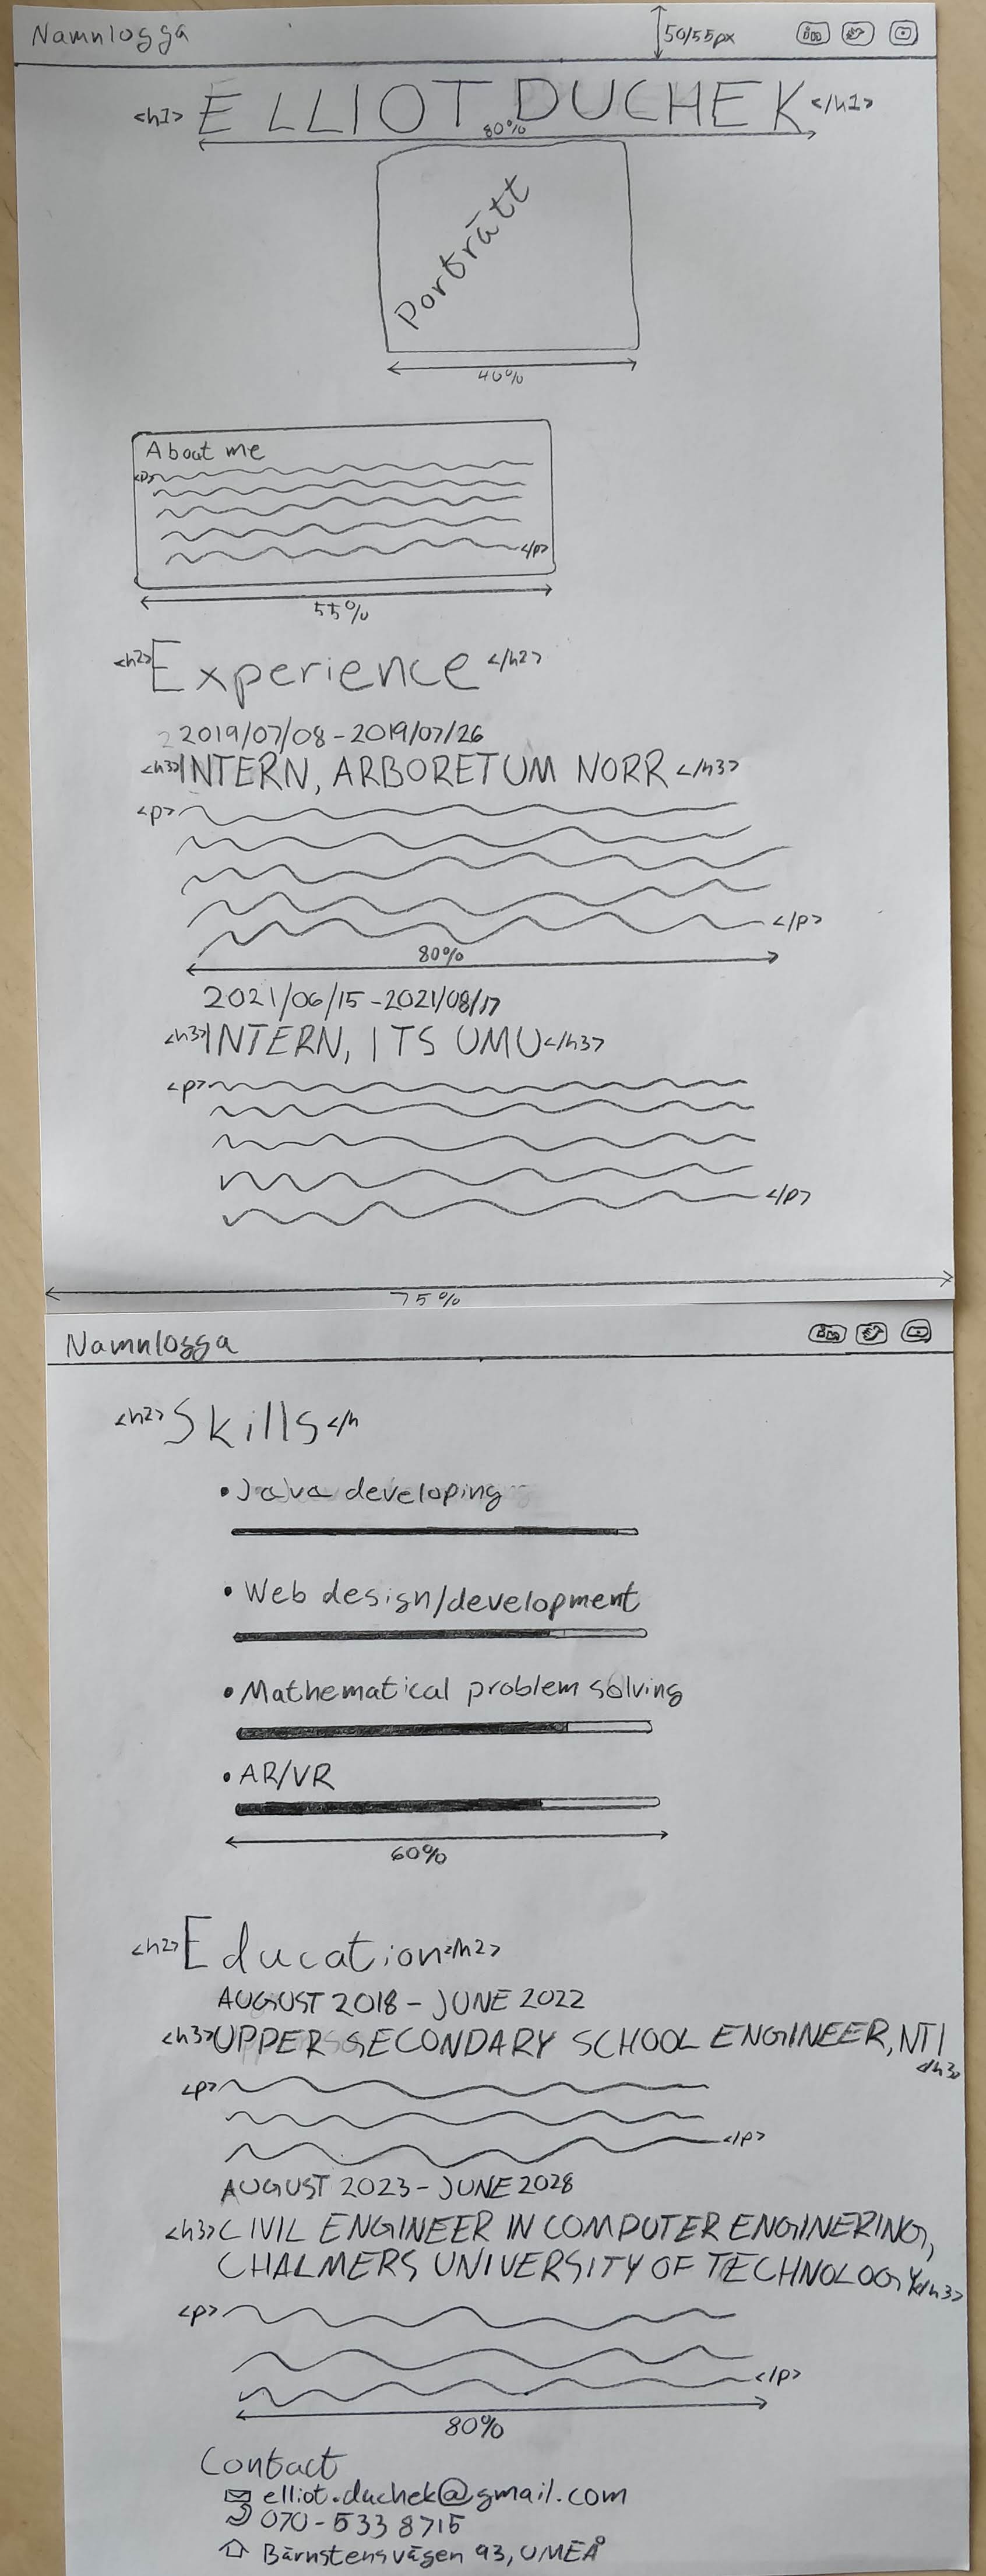 Namnlogga 50/55px in
<h1> ELLIOT DUCHEK </h1>
80%
Porträtt
40%
About me
<p>
</p>
55%
<h2> Experience </h2>
2019/07/08 - 2019/07/26
<h3> INTERN, ARBORETUM NORR </h3>
<p>
</p>
80%
2021/06/15 - 2021/08/17
<h3> INTERN, ITS UMU </h3>
<p>
</p>
75%
Namnlogga in
<h2> Skills </h
• Java developing
• Web design/development
• Mathematical problem solving
• AR/VR
60%
<h2> Education </h2>
AUGUST 2018 - JUNE 2022
<h3> UPPER SECONDARY SCHOOL ENGINEER, NTI
</h3>
<p>
</p>
AUGUST 2023 - JUNE 2028
<h3> CIVIL ENGINEER IN COMPUTER ENGINERING,
CHALMERS UNIVERSITY OF TECHNOLOGY </h3>
<p>
</p>
80%
Contact
elliot.duchek@gmail.com
070-533 8715
Bärnstensvägen 93, UMEÅ